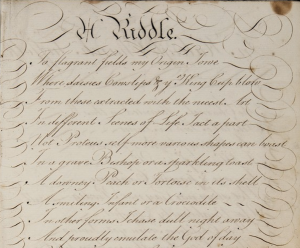 A Riddle.
To flagrant fields my Origin I owe
Where daisies Cowslips & y King Cup blow
From these extracted with the nicest Art
In different Scenes of Life I act a part
Not Proteus self more various shapes can boast
In a grave Bishop or a sparkling toast
A downey Peach or Tortoise in its shell
A smiling Infant or a Crocodile
In other forms I chase dull night away
And proudly emulate the God of day